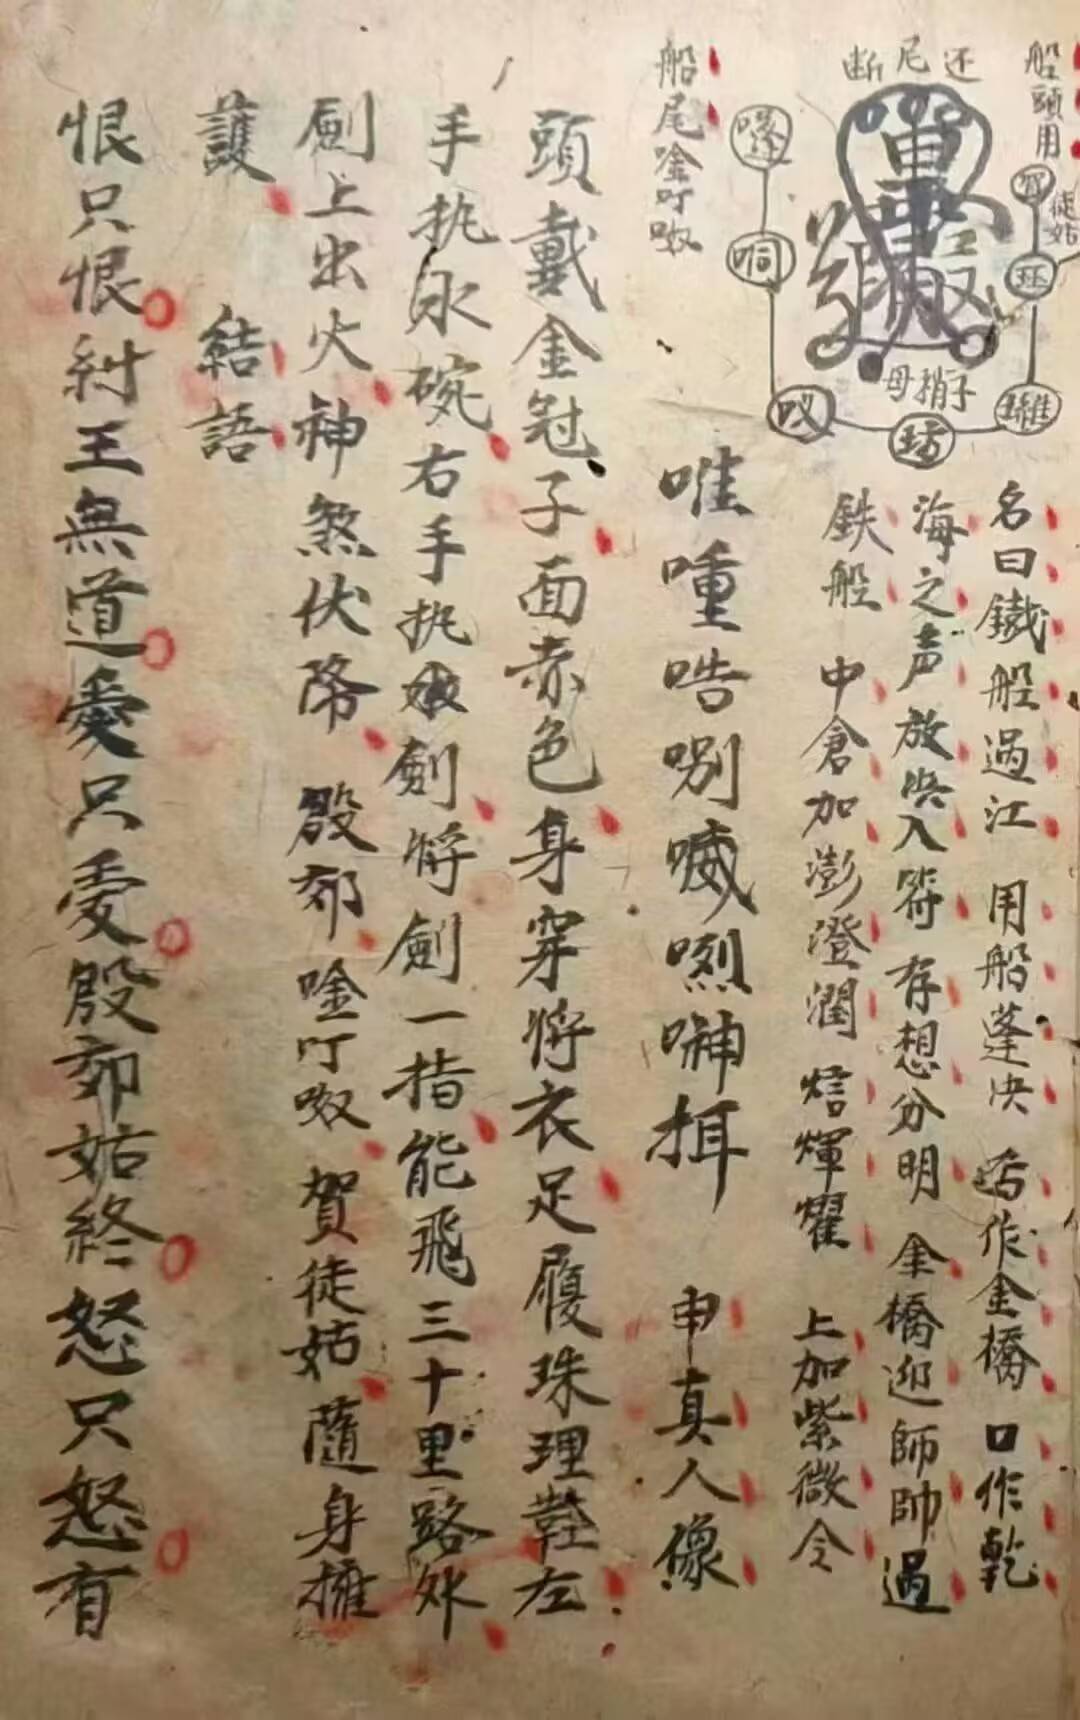 船頭用
徒姑
断尾还
母梢子
坊
船尾唫吖呶
名曰鐵船過江 用船蓬决 舌作金橋 口作乾
海之声 放决入符 存想分明 金橋迎師帥過
鉄船 中倉加澎澄潤 焙煇耀 上加紫微令
唯喠哠唎喴烈呻挕 申真人像
頭戴金冠子面赤色身穿将衣足履珠理鞋左
手执水碗右手执劍将劍一指能飛三十里路外
劍上出火神煞伏降 殷郊唫吖呶 賀徒姑隨身擁
護 結語
恨只恨紂王無道愛只愛殷郊姑終怒只怒有